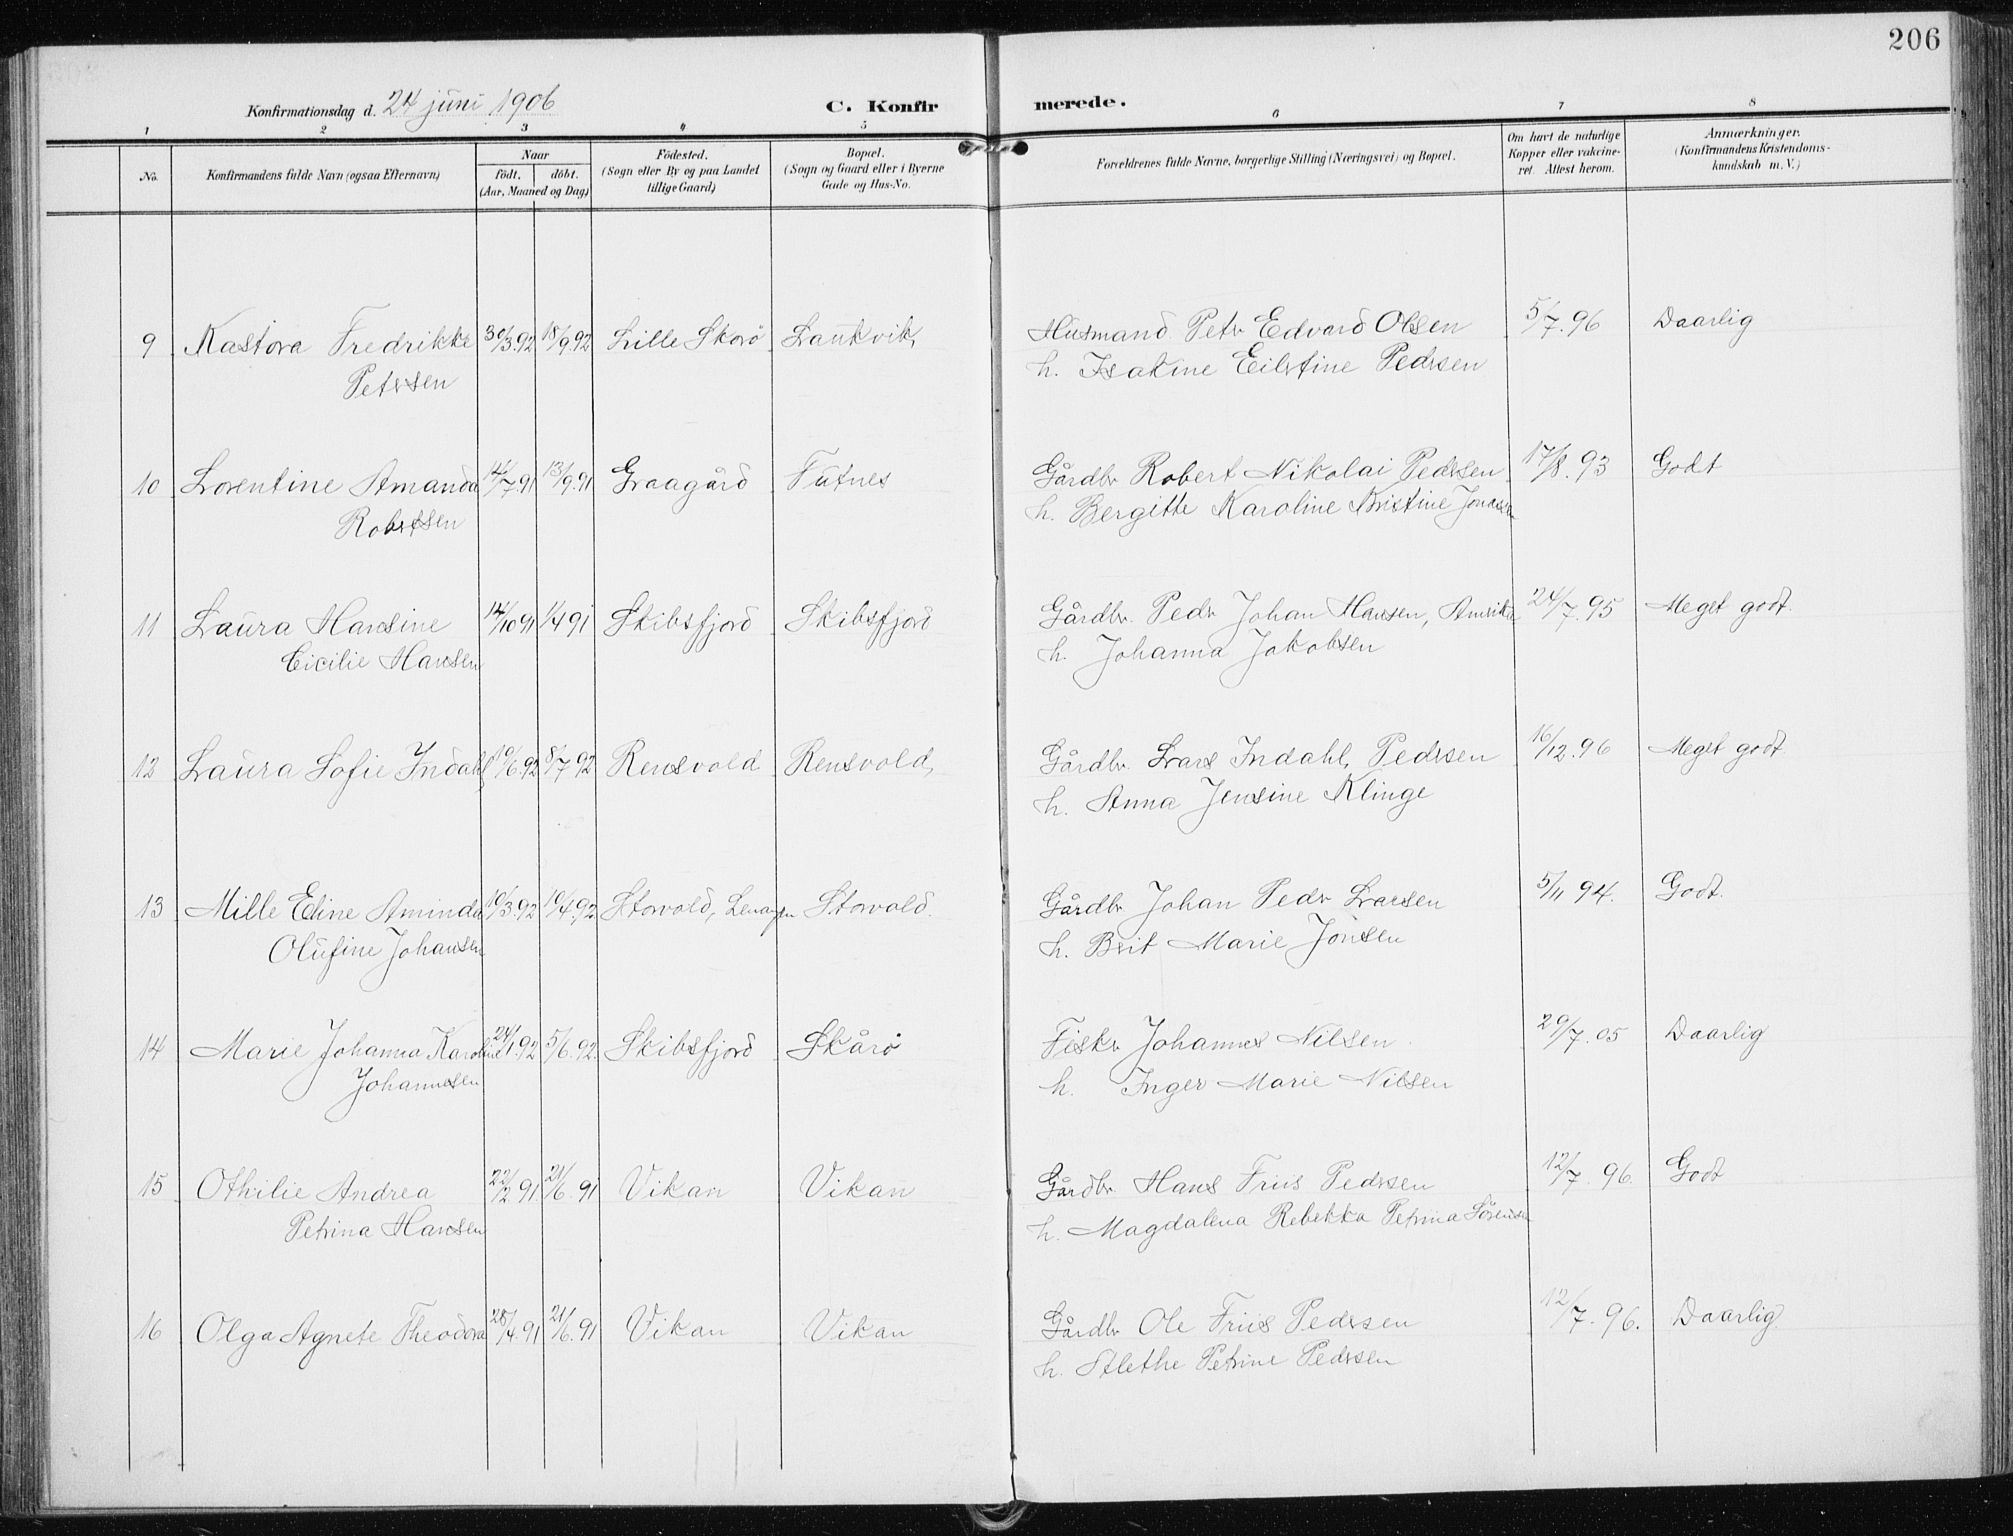 206
Konfirmationsdag d. 24 juni 1906
C. Konfir merede.
1 2 3 4 5 6 7 8
No.
Konfirmandens fulde Navn (ogsaa Efternavn)
Naar
födt. döbt.
(Aar, Maaned og Dag)
Födested.
(Sogn eller By og paa Landet
tillige Gaard)
Bopæl.
(Sogn og Gaard eller i Byerne
Gade og Hus-No.
Forældrenes fulde Navne, borgerlige Stilling (Næringsvei) og Bopæl.
Om havt de naturlige
Kopper eller vakcine-
ret. Attest herom.
Anmærkninger.
(Konfirmandens Kristendoms-
kundskab m. V.)
9 Kastora Fredrikke 30/3.92 18/9.92 Lille Skorö Lankvik, Husmand Peter Edvard Olsen 5/7.96 Daarlig
Petersen h. Isakine Eilertine Pedersen
10 Lorentine Amanda 14/7.91 13/9.91 Graagård Futnes Gårdbr Robert Nikolai Pedersen 17/8.93 Godt
Robertsen h. Bergitte Karoline Kristine Jonassen
11 Laura Hansine 14/10 91 1/4 91 Skibsfjord Skibsfjord Gårdbr. Peder Johan Hansen, Amerika 24/7.95 Meget godt.
Cicilie Hansen h. Johanna Jakobsen
12 Laura Sofie Indahl 10/6.92 8/7 92 Rensvold Rensvold, Gårdbr. Lars Indahl, Pedersen 16/12.96 Meget godt
h. Anna Jensine Klinge
13 Mille Eline Aminda 10/3.92 10/4.92 Storvold, Lenangen Storvold. Gårdbr Johan Peder Larsen 5/11 94. Godt.
Olufine Johansen h. Berit Marie Jonsen
14 Marie Johanna Karoline 24/1.92 5/6.92. Skibsfjord Skårö Fisker Johannes Nilsen. 29/7.05 Daarlig
Johannesen h. Inger Marie Nilsen
15 Othilie Andrea 22/2 91 21/6.91 Vikan Vikan Gårdbr. Hans Friis Pedersen 12/7.96. Godt
Petrina Hansen h. Magdalena Rebekka Petrina Sörensen
16 Olga Agnete Theodora 28/4.91 21/6.91 Vikan Vikan Gårdbr Ole Friis Pedersen 12/7.96. Daarlig
h. Petrine Pedersen